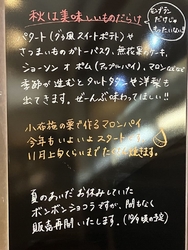 秋は美味しいものだらけ
モンブラン
だけじゃ
もったいない!
パタート(グゥ風スイートポテト)や
さつまいものガトーバスク、無花果のケーキ、
ショーソン オ ポム(アップルパイ)、マロンなどなど
季節が進むとタルトタタンや洋梨も
出てきます。ぜーんぶ味わってほしい!!
小布施の栗で作るマロンパイ
今年もいよいよスタート
11月上旬くらいまで
夏のあいだお休みしていた
ボンボンショコラですが、間もなく
販売再開いたします。(10/9頃の予定)